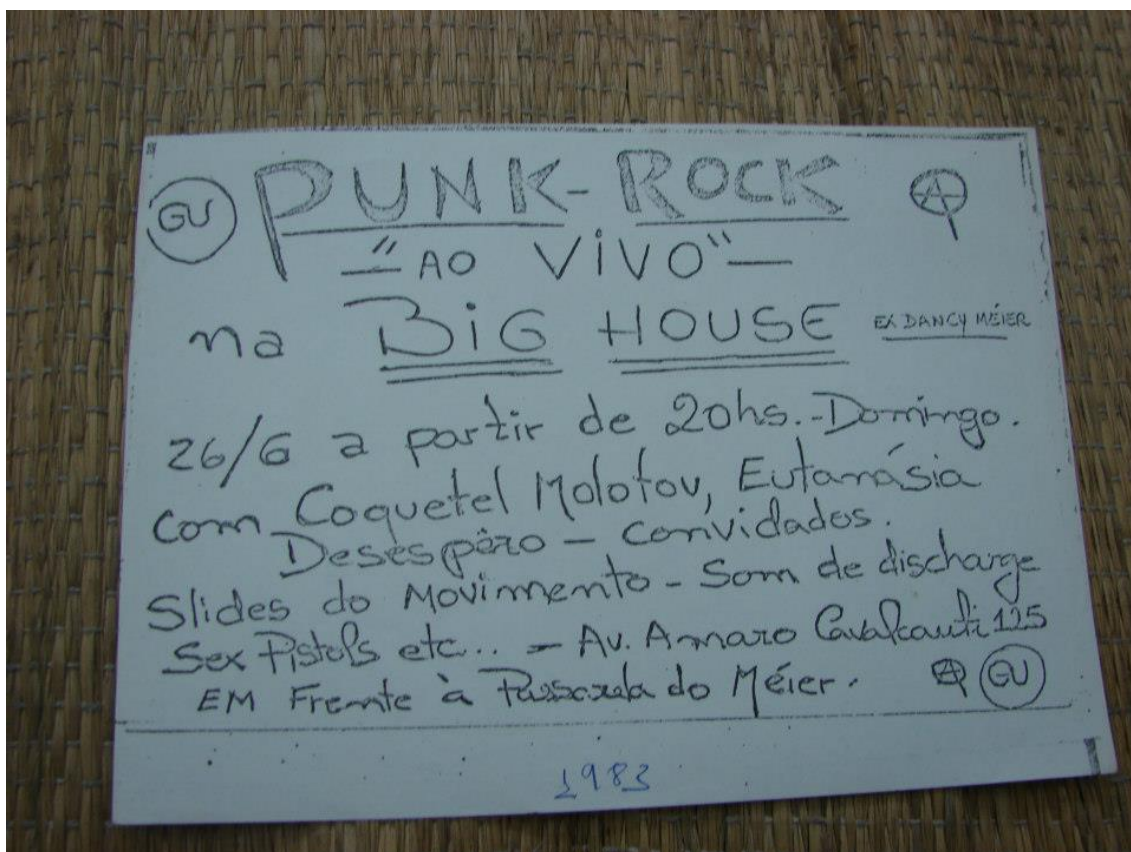 GU PUNK-ROCK A
-"AO VIVO"-
na BIG HOUSE EX DANCY MÉIER
26/6 a partir de 20hs.-Domingo.
com Coquetel Molotov, Eutanásia
Desespêro - convidados.
Slides do Movimento - Som de discharge
Sex Pistols etc... - Av. Amaro Cavalcauti 125
EM Frente à Passarela do Méier. A GU
1983